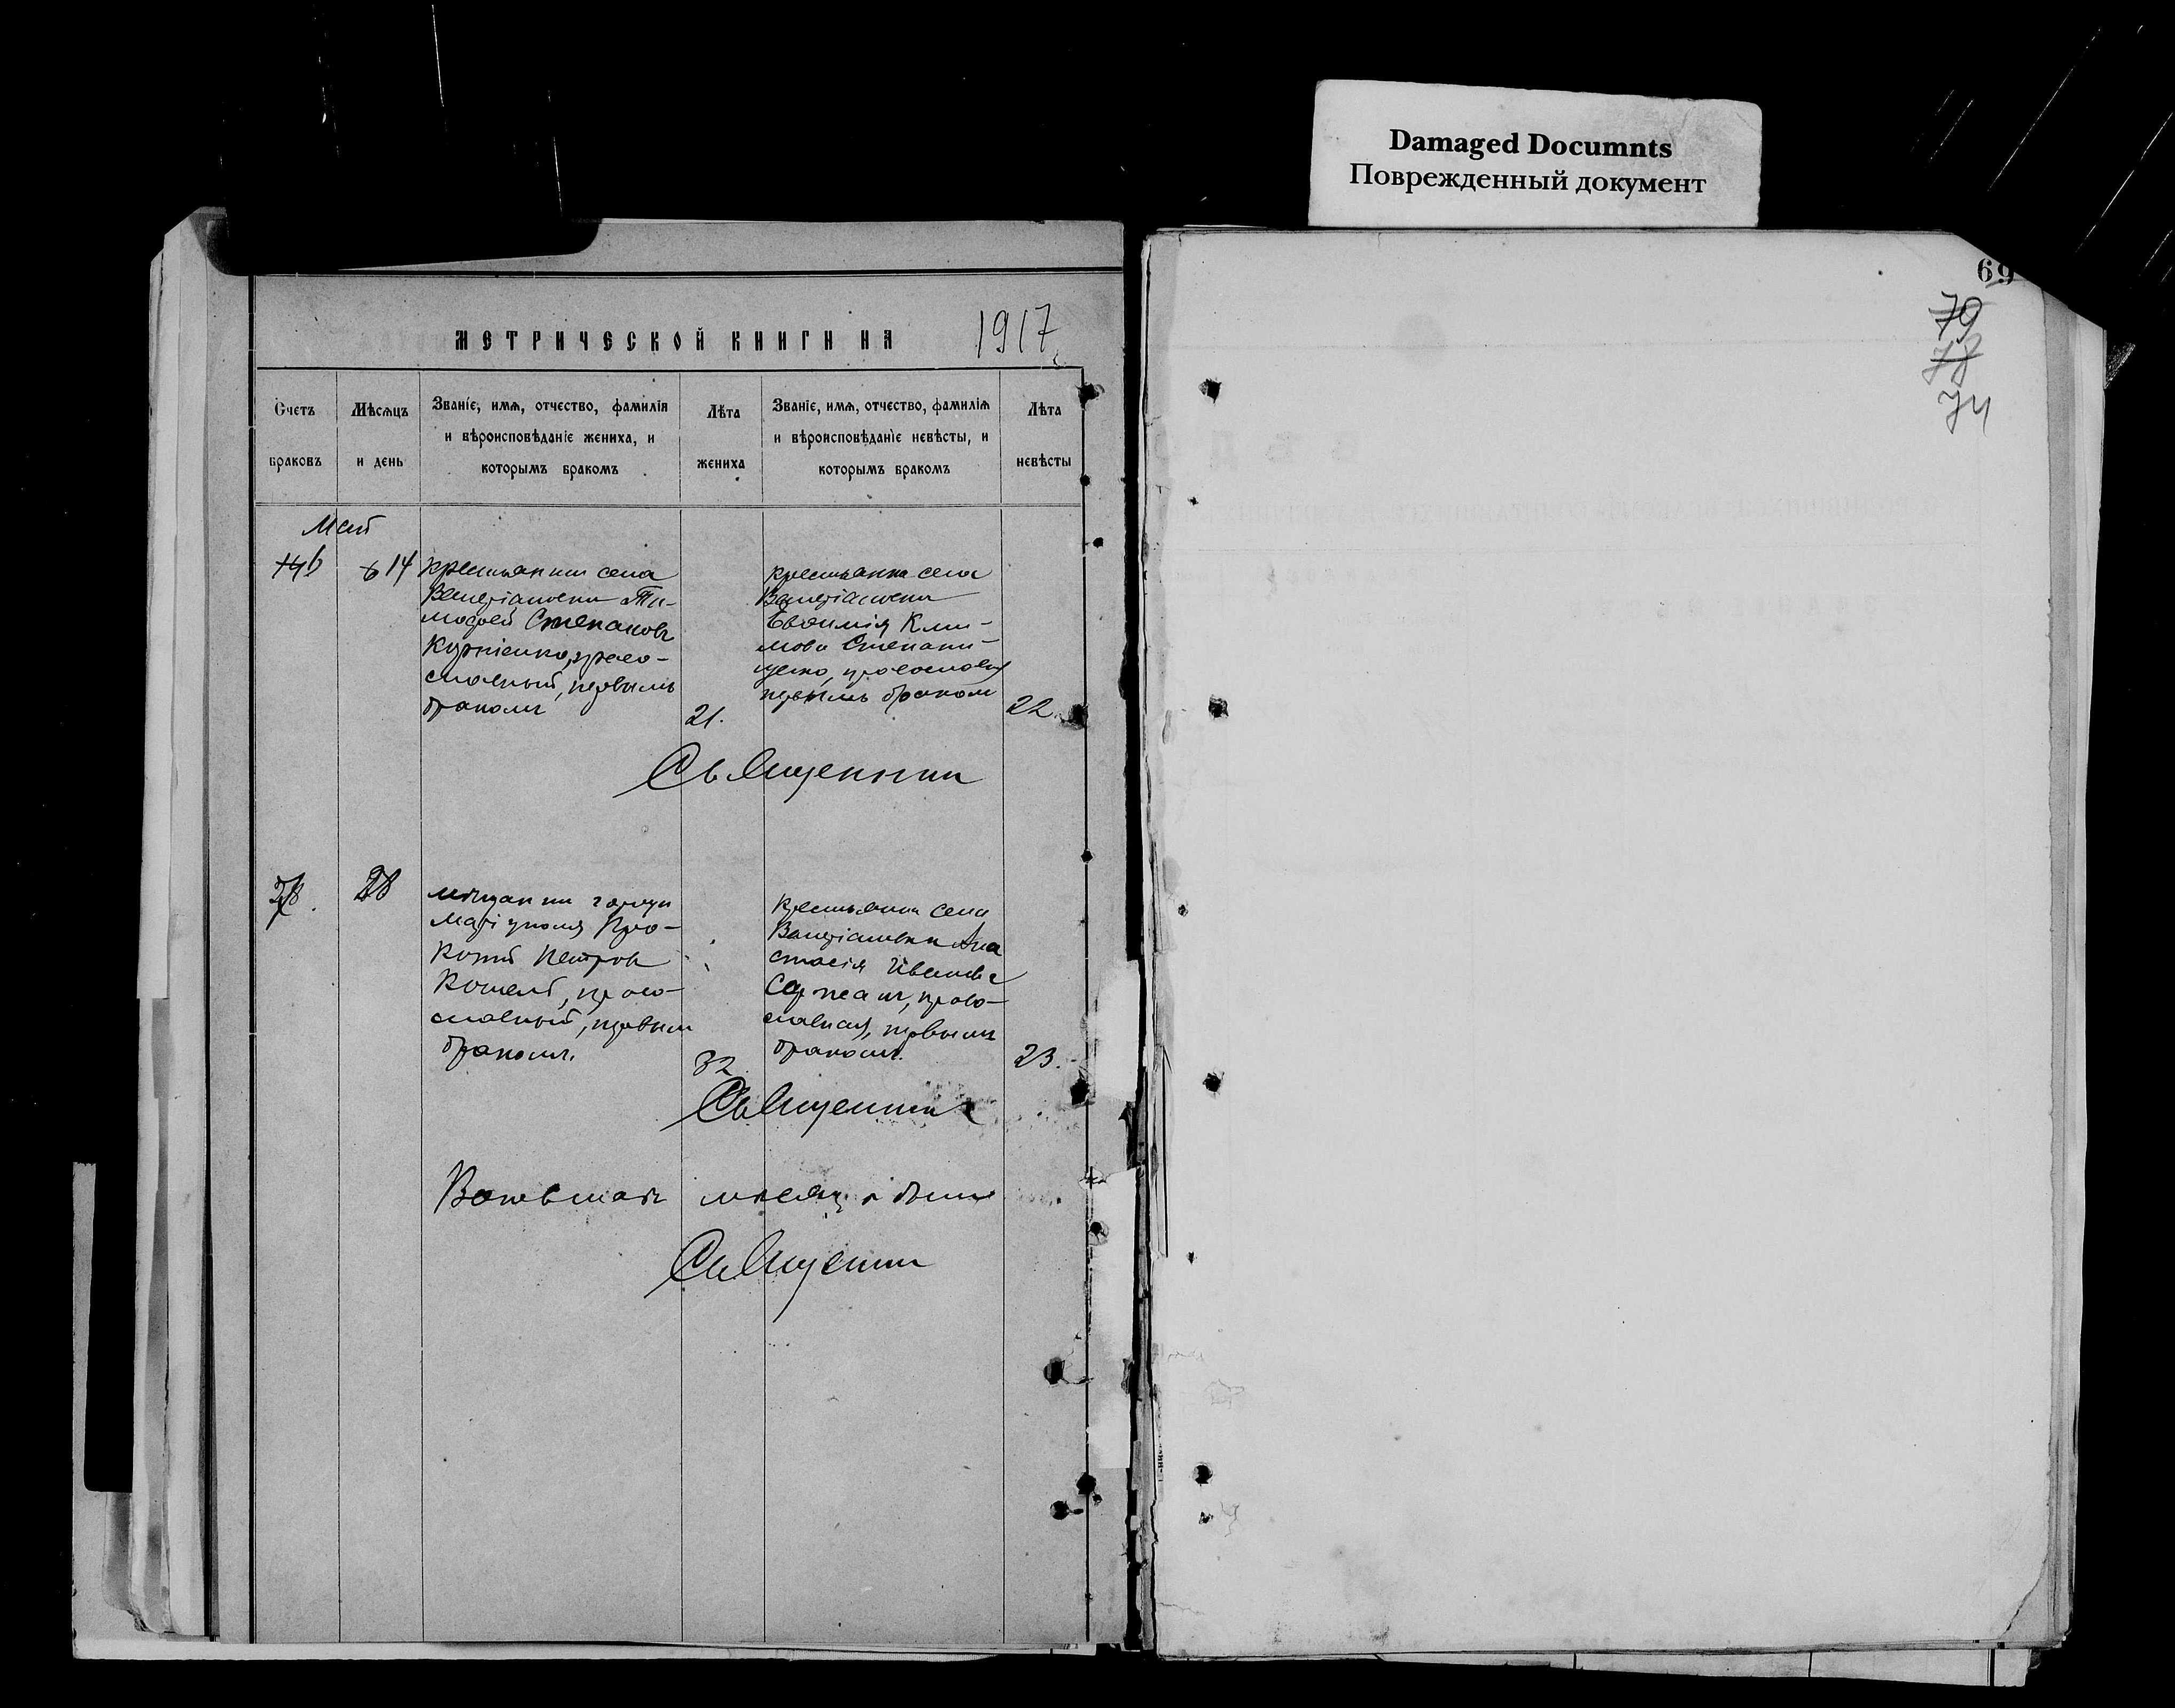 Damaged Documnts
Поврежденный документ
69
79
74
МЕТРИЧЕСКОЙ КНИГИ НА 1917
Счетъ браковъ
Мѣсяцъ и день
Званіе, имя, отчество, фамилія и вѣроисповѣданіе жениха, и которымъ бракомъ
Лѣта жениха
Званіе, имя, отчество, фамилія и вѣроисповѣданіе невѣсты, и которымъ бракомъ
Лѣта невѣсты
Май
6
14
крестьянин села
Валеріановки Ти-
мофей Степановъ
право-
славный, первымъ
бракомъ
21.
крестьянка села
Валеріановки
Евѳимія Кли-
мова Степани-
щенко, православ
первымъ бракомъ
22
Священник
28
мѣщанин города
Маріуполя Про-
копій Петров
право-
славный, первым
бракомъ.
32
крестьянка села
Валеріановки Ана
стасія Иванова
право-
славная, первымъ
бракомъ.
23.
Священник
мѣсяц
Священник